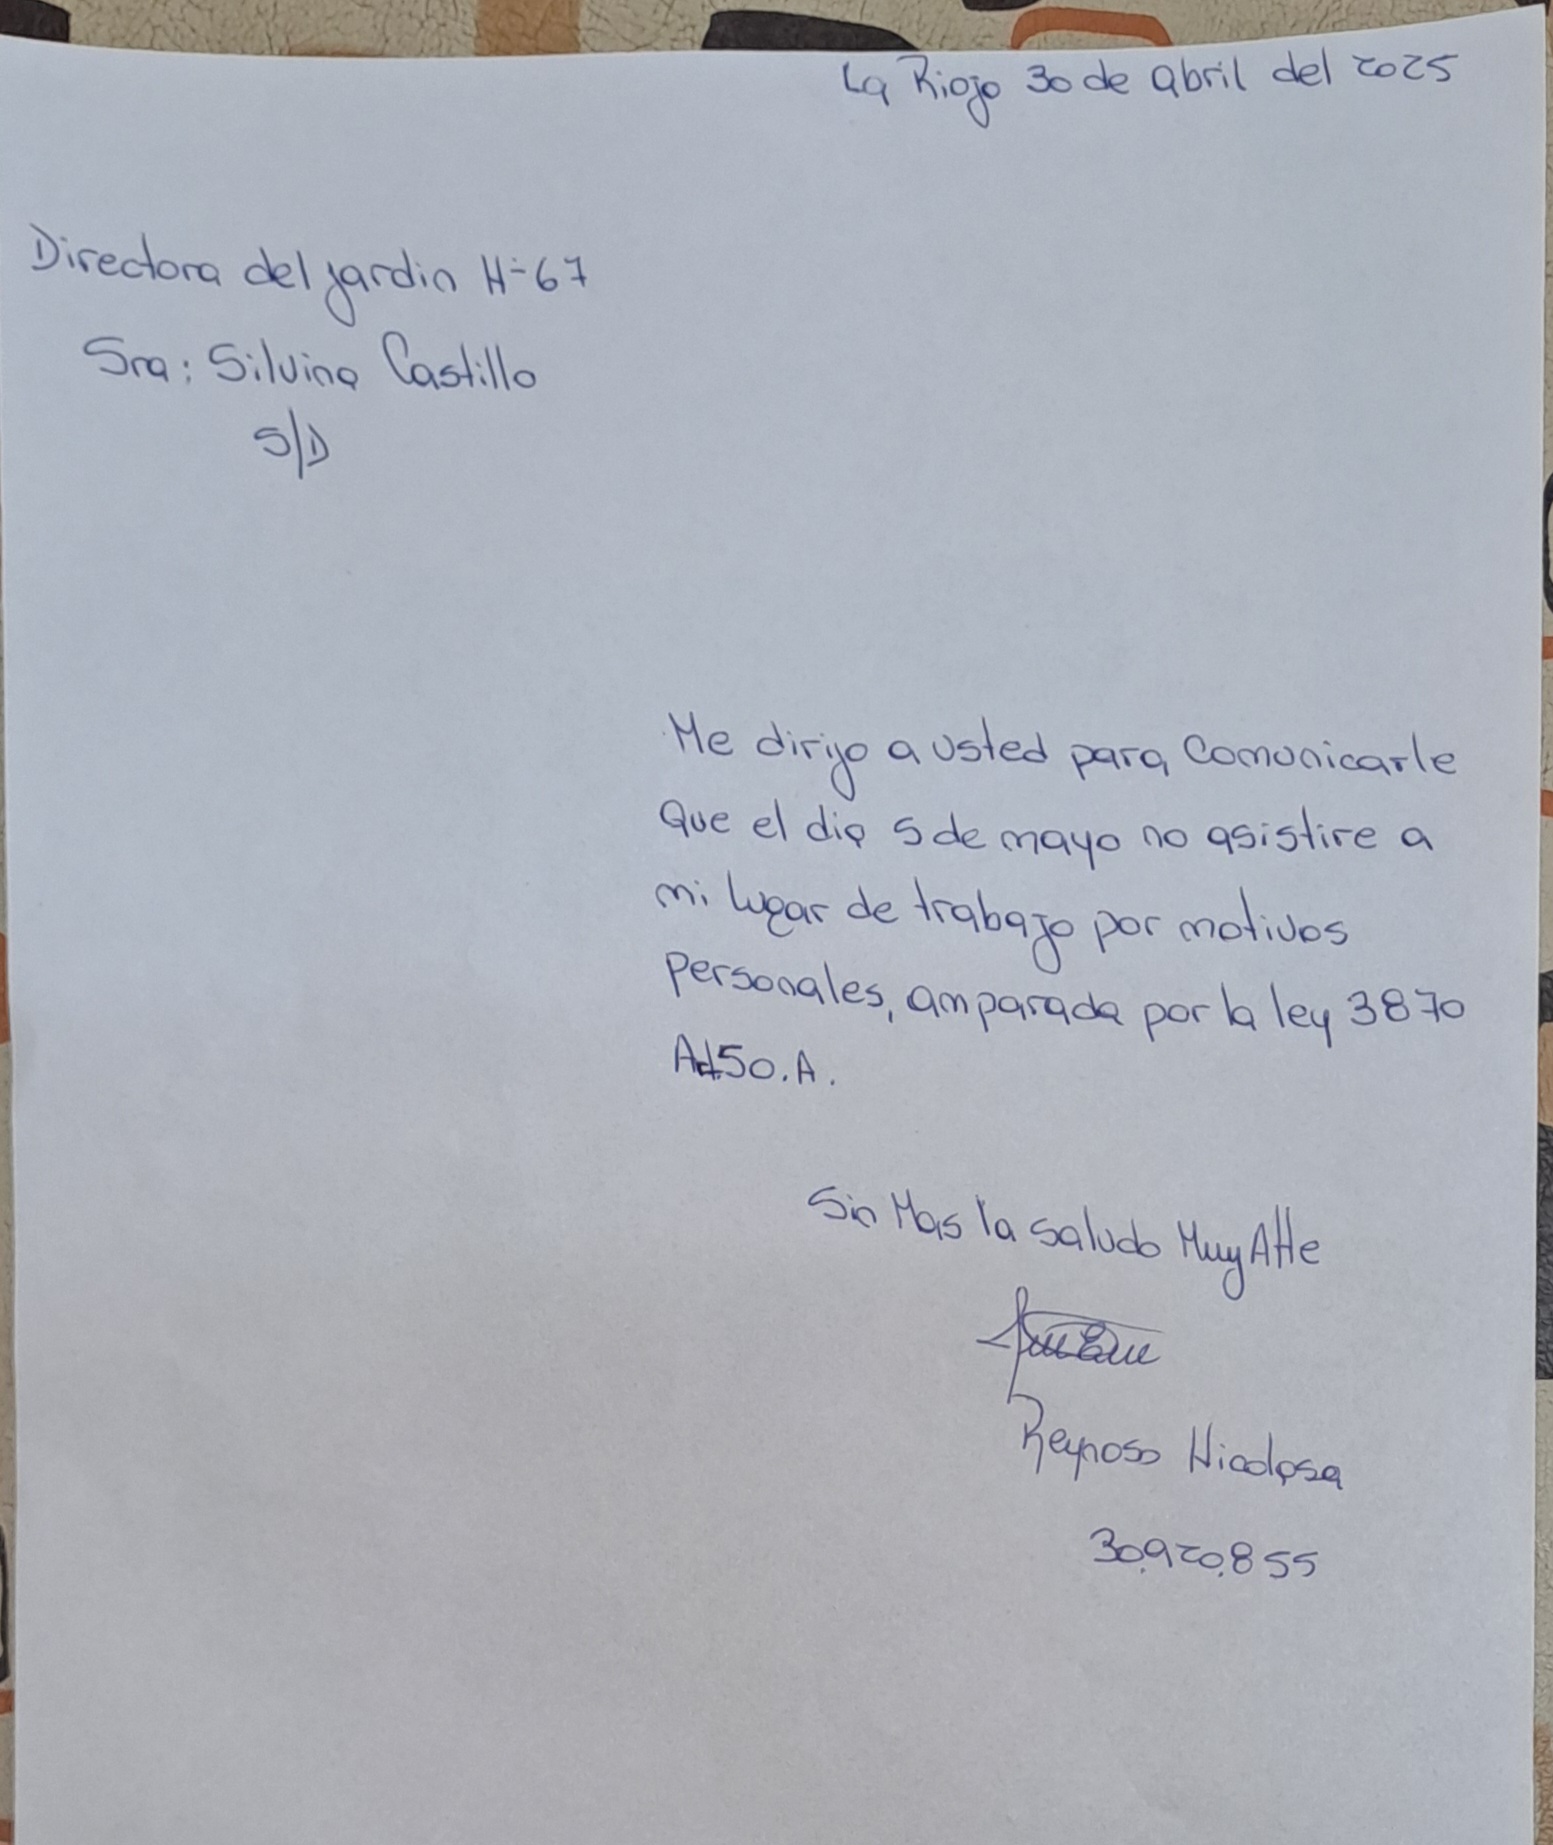 La Rioja 30 de abril del 2025
Directora del jardin N-67
Sra: Silvina Castillo
S/D
Me dirijo a usted para comunicarle
Que el dia 5 de mayo no asistire a
mi lugar de trabajo por motivos
personales, amparada por la ley 3870
Art.50.A.
Sin Mas la saludo Muy Atte
Reynoso Nicolasa
30.920.855